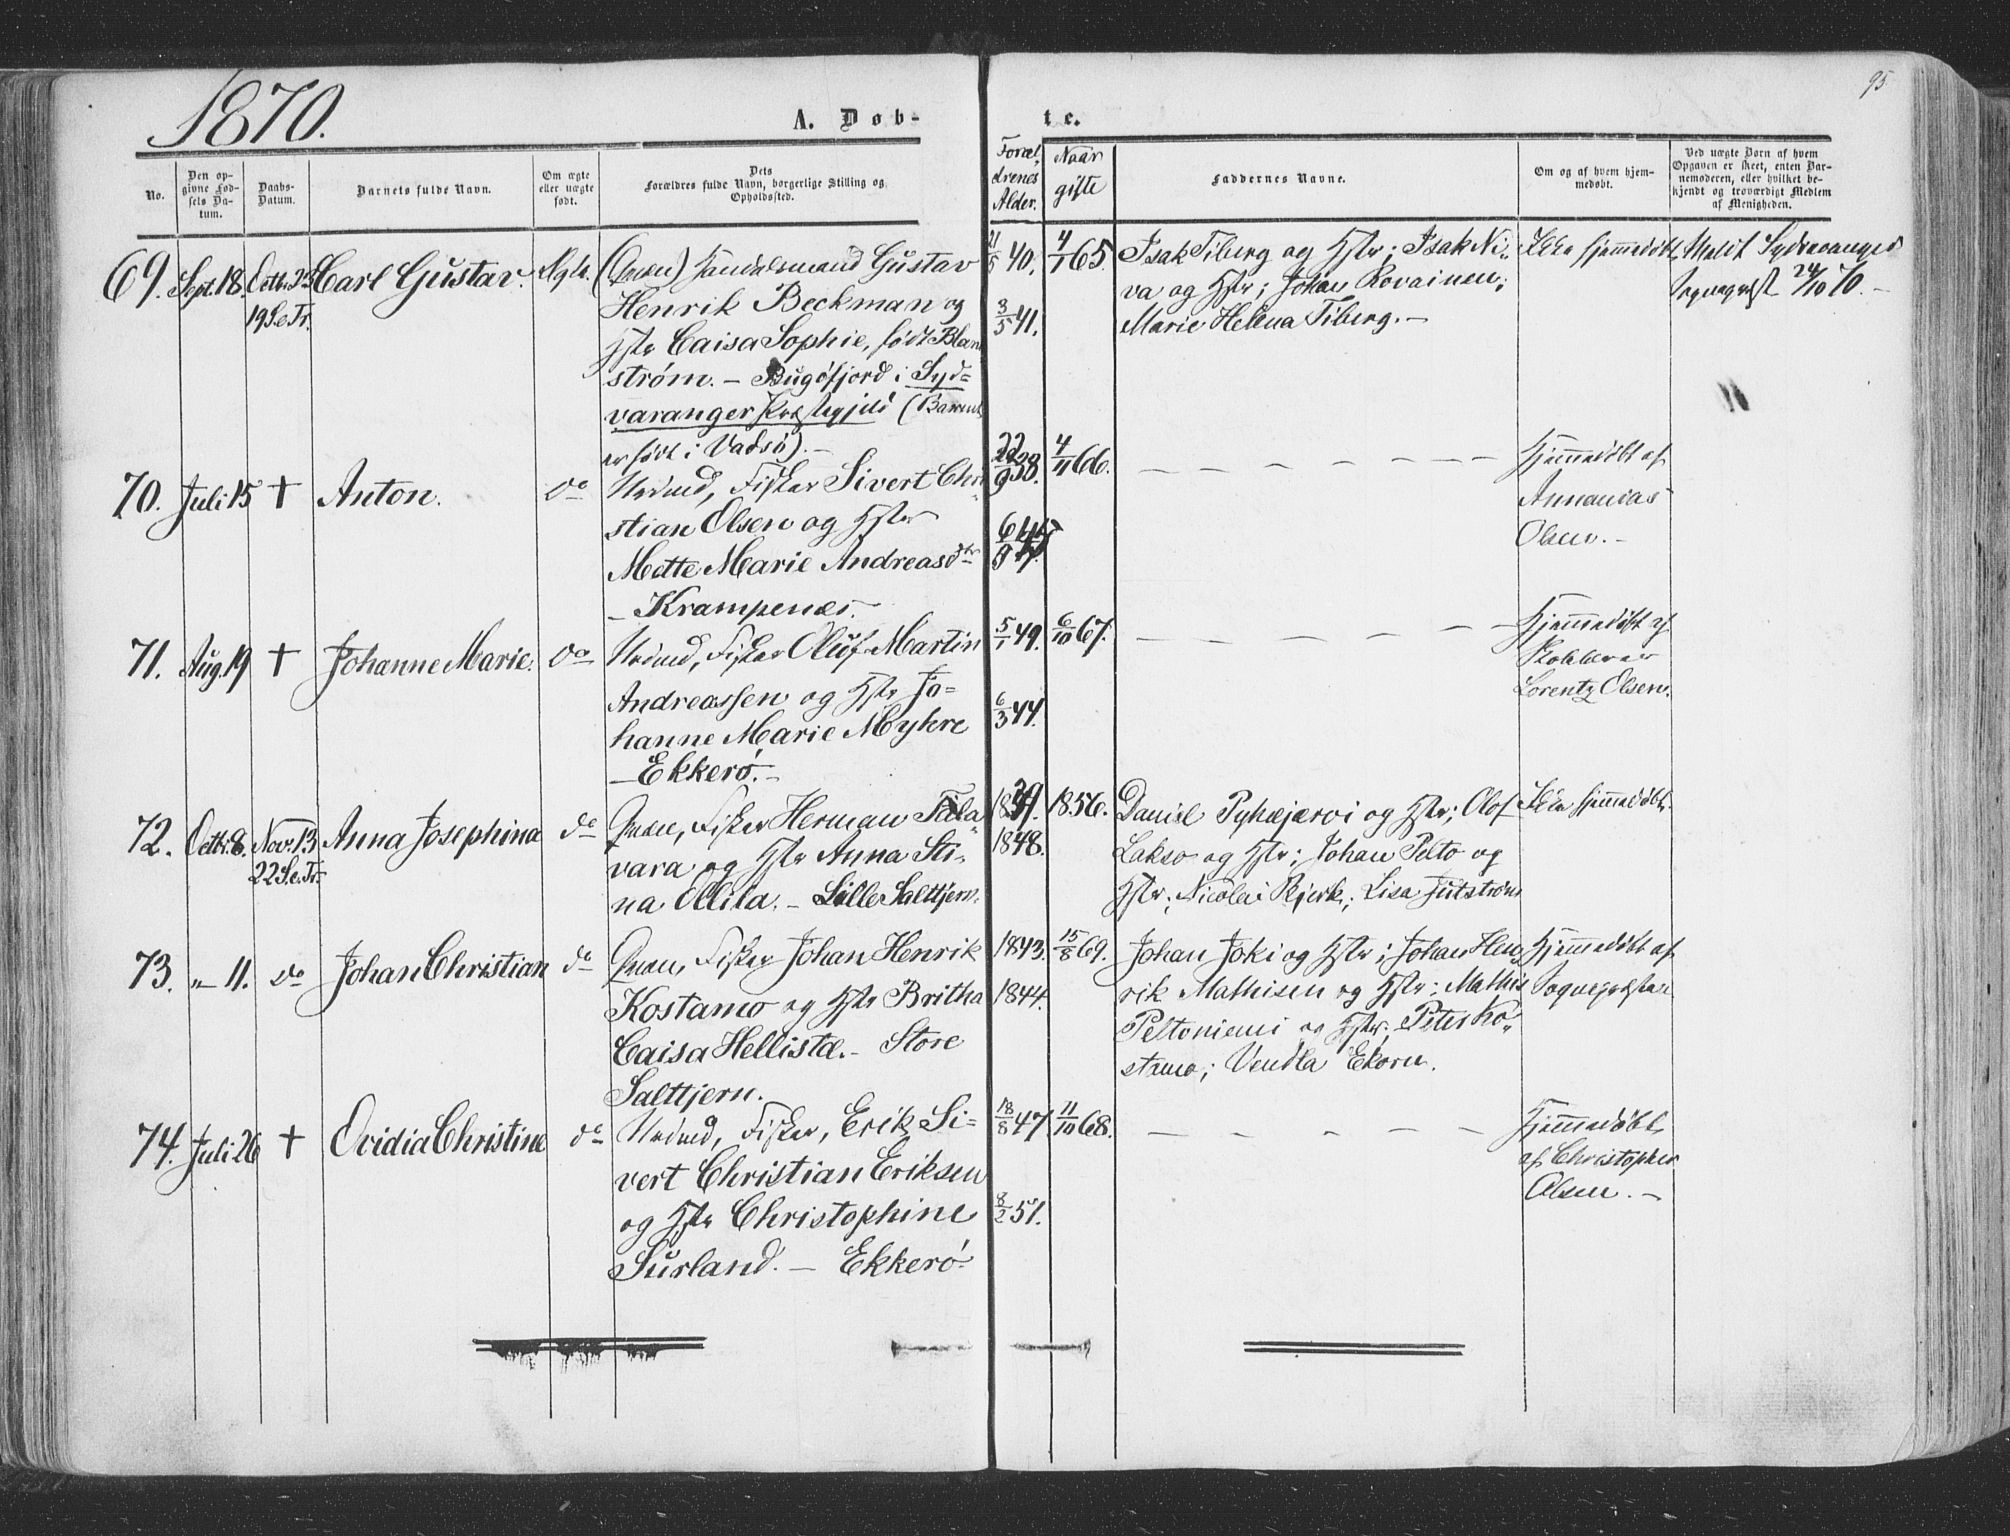 1870.
95
A. Døb-
te.
No.
Den op-
givne Fød-
sels Da-
tum.
Daabs-
Datum.
Barnets fulde Navn.
Om ægte
eller uægte
født.
Dets
Forældres fulde Navn, borgerlige Stilling og
Opholdssted.
Foræl-
drenes
Alder.
Naar
gifte
Faddernes Navne.
Om og af hvem hjem-
medøbt.
Ved uægte Børn af hvem
Opgaven er skeet, enten Bar-
nemoderen, eller hvilket be-
kjendt og troværdigt Medlem
af Menigheden.
69. Sept. 18. Octbr. 23
19 S. e. Tr.
Carl Gustav.
Ægte.
(Qvæn) Handelsmand Gustav
Henrik Beckman og
Hstr Caisa Sophie, født Blan
strøm. — Bugøfjord i Syd=
varanger Præstegjeld (Barnet
er født i Vadsø). —
21/5 40.
3/5 41.
4/1 65.
Isak Tiberg og Hstr; Isak Ni-
va og Hstr; Johan Rovainen;
Marie Helena Tiberg. —
Ikke hjemmedøbt.
Meldt Sydvaranger
Sogneprest 24/10 70. —
70. Juli 15 † Anton. do
Nordmd, Fisker Sivert Chri
stian Olsen og Hstr
Mette Marie Andreasdtr
— Krampenæs. —
22/9 38.
6/9 45
4/11 66.
— — — — — —
Hjemmedøbt af
Annanias
Olsen. —
71. Aug. 19 † Johanne Marie. do
Nordmd, Fisker Oluf Martin
Andreassen og Hstr Jo=
hanne Marie Myhre
— Ekkerø. —
5/1 49.
6/3 44.
6/10 67.
— — — — — —
Hjemmedøbt af
Klokker
Lorentz Olsen.
72. Octbr. 8. Nov. 13
22 S. e. Tr.
Anna Josephina do
Qvæn, Fisker Herman Tila
vara og Hstr Anna Sti-
na Ollila. — Lille Salttjern.
1848.
1856.
Daniel Pyhæjærvi og Hstr; Olof
Lakso og Hstr; Johan Pelto og
Hstr; Nicolai Bjerk; Lisa Jutström
Ikke hjemmedøbt.
73. „ 11. do Johan Christian do
Qvæn, Fisker Johan Henrik
Kostamo og Hstr Britha
Caisa Hellista. — Store
Salttjern.
1843.
1844.
15/8 69.
Johan Joki og Hstr; Johan Hen
rik Mathisen og Hstr; Mathis
Peltoniemi og Hstr; Peter Ko-
stamo; Vendla Ekorn.
Hjemmedøbt af
Sognepræsten
74. Juli 26 † Ovidia Christine do
Nordmd, Fisker, Erik Si-
vert Christian Eriksen
og Hstr Christophine
Surland. — Ekkerø
18/8 47.
8/2 51.
11/10 68.
— — — — — —
Hjemmedøbt
af Christopher
Olsen. —